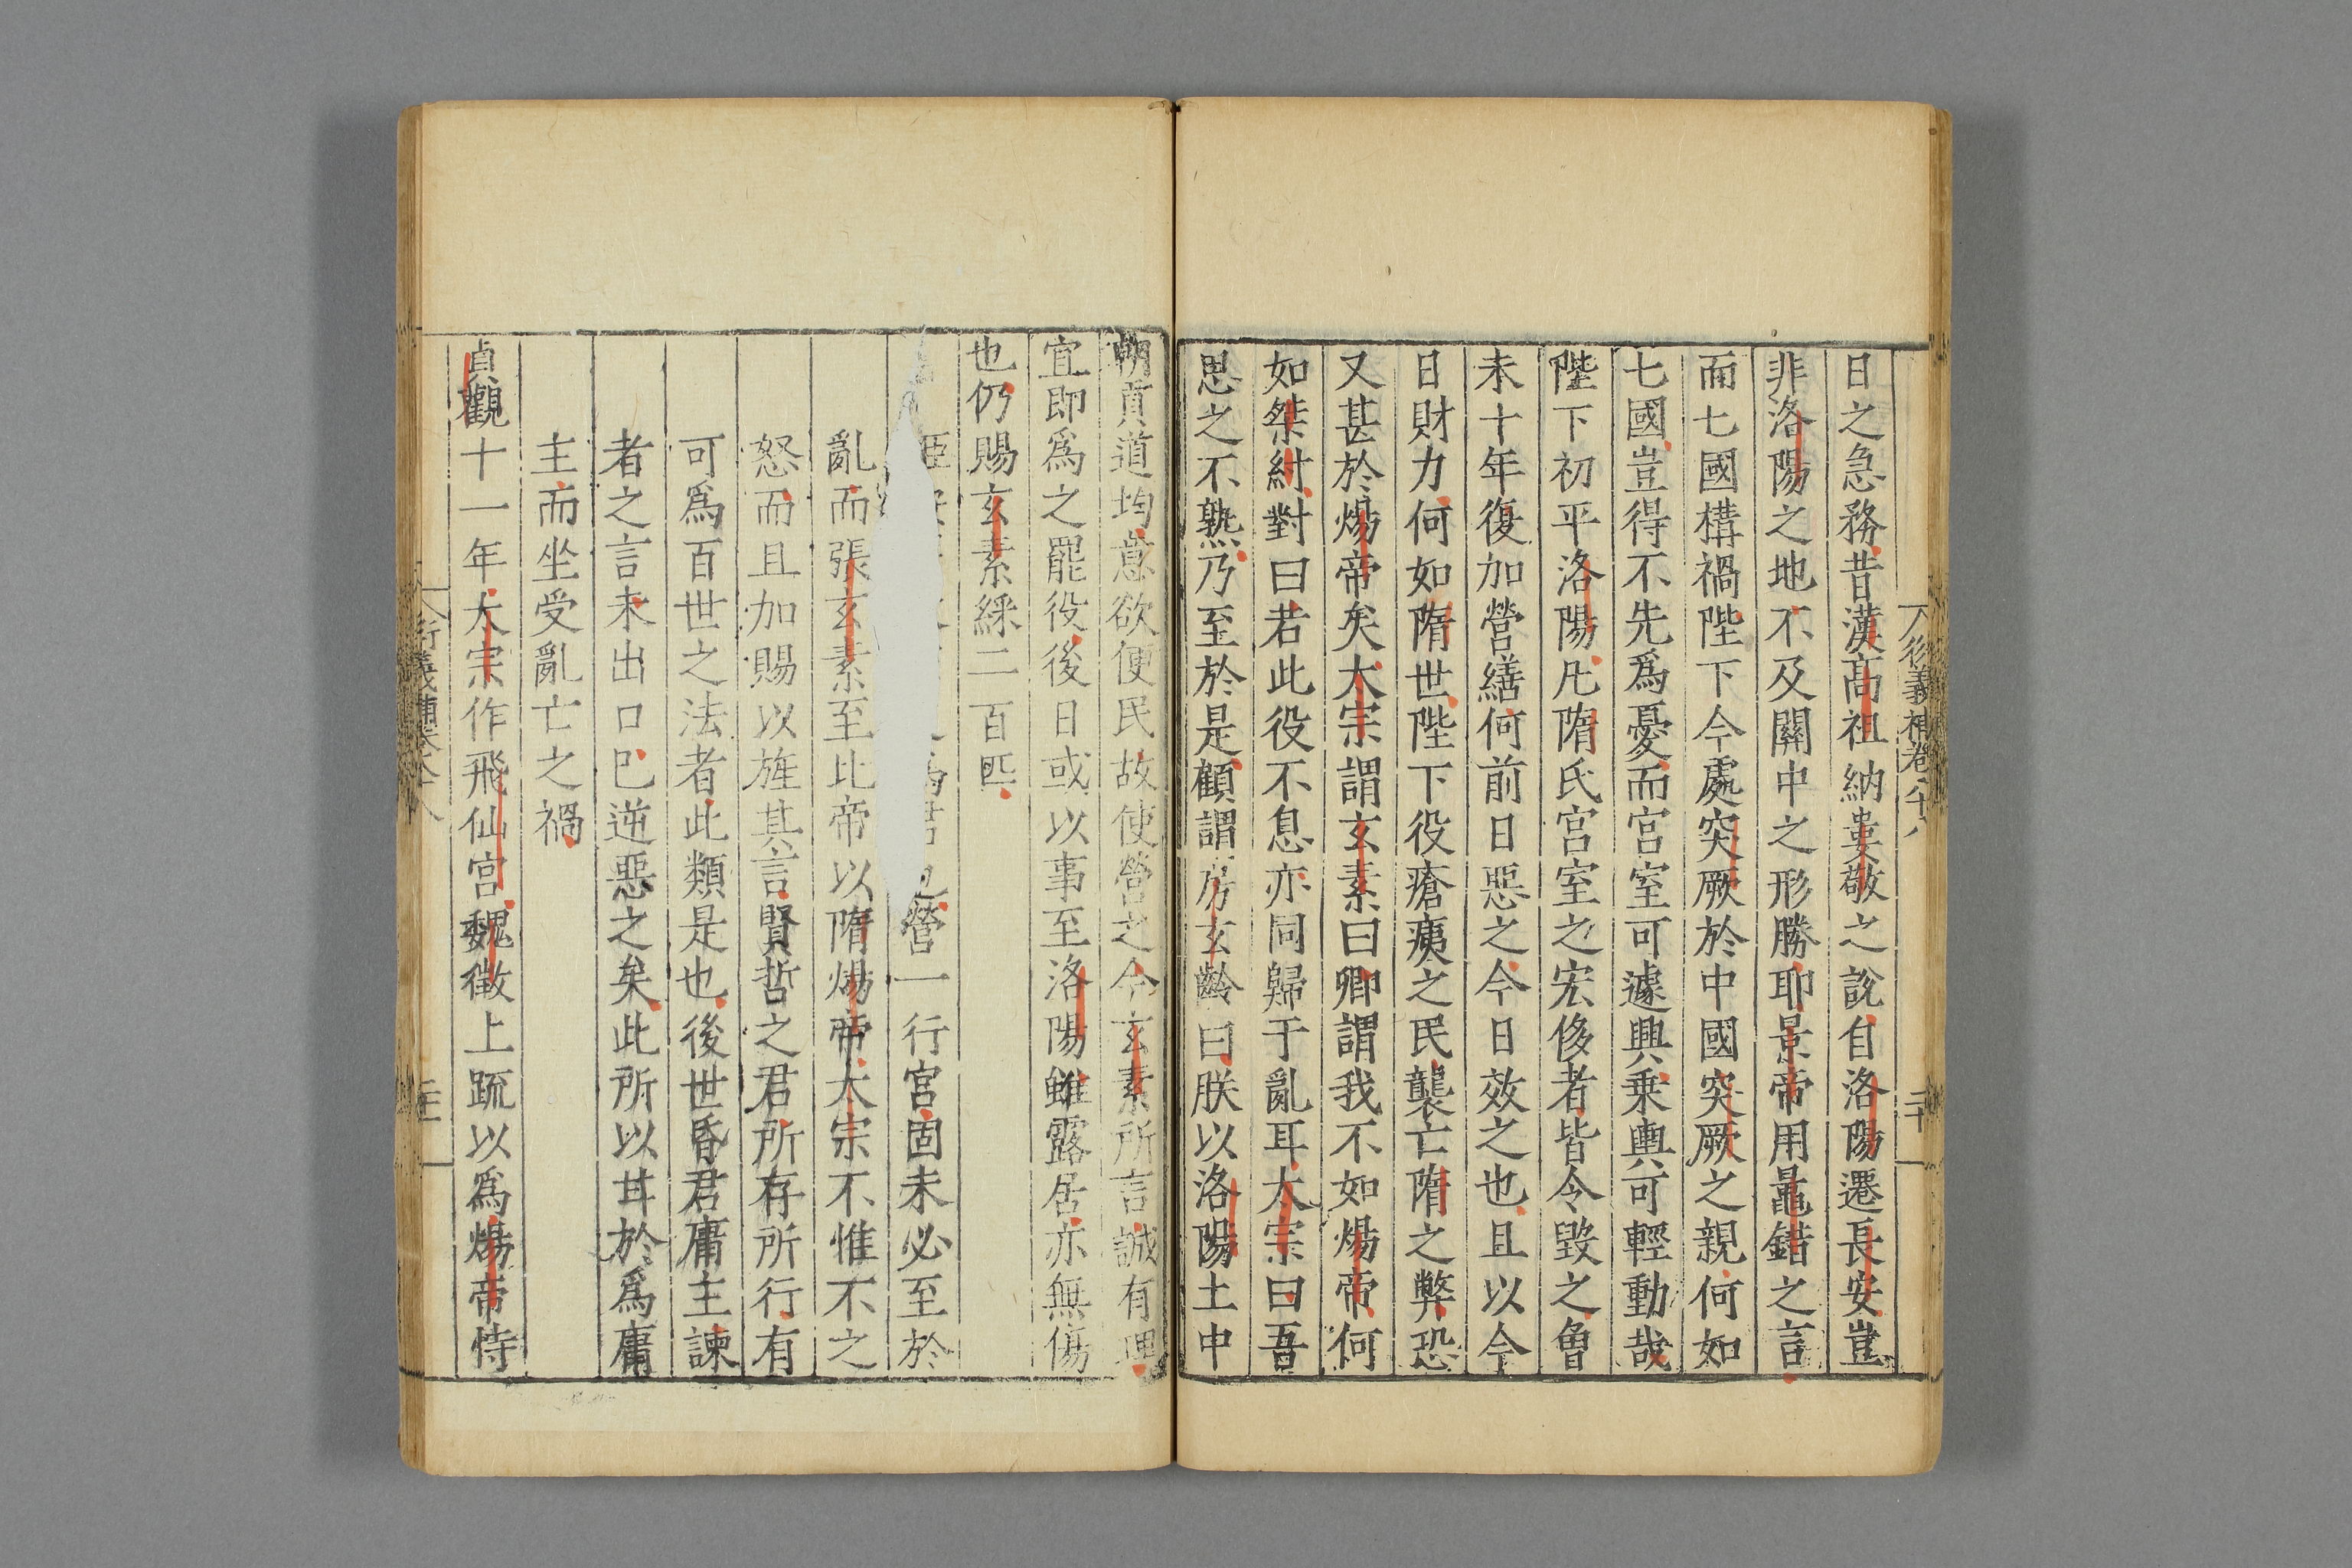 日之急務昔漢高祖納婁敬之說自洛陽遷長安豈
非洛陽之地不及關中之形勝耶景帝用鼂錯之言
而七國構禍陛下今處突厥於中國突厥之親何如
七國豈得不先爲憂而宮室可遽興乗輿可輕動哉
陛下初平洛陽凡隋氏宮室之宏侈者皆令毀之曾
未十年復加營繕何前日惡之今日效之也且以今
日財力何如隋世陛下役瘡痍之民襲亡隋之弊恐
又甚於煬帝矣太宗謂玄素曰卿謂我不如煬帝何
如桀紂對曰若此役不息亦同歸于亂耳太宗曰吾
思之不熟乃至於是顧謂房玄齡曰朕以洛陽土中
朝貢道均意欲便民故使營之今玄素所言誠有理
宜即爲之罷役後日或以事至洛陽雖露居亦無傷
也仍賜玄素綵二百匹
臣 營一行宮固未必至於
亂而張玄素至比帝以隋煬帝太宗不惟不之
怒而且加賜以旌其言賢哲之君所存所行有
可爲百世之法者此類是也後世昏君庸主諫
者之言未出口已逆惡之矣此所以甘於爲庸
主而坐受亂亡之禍
貞觀十一年太宗作飛仙宮魏徵上疏以爲煬帝恃